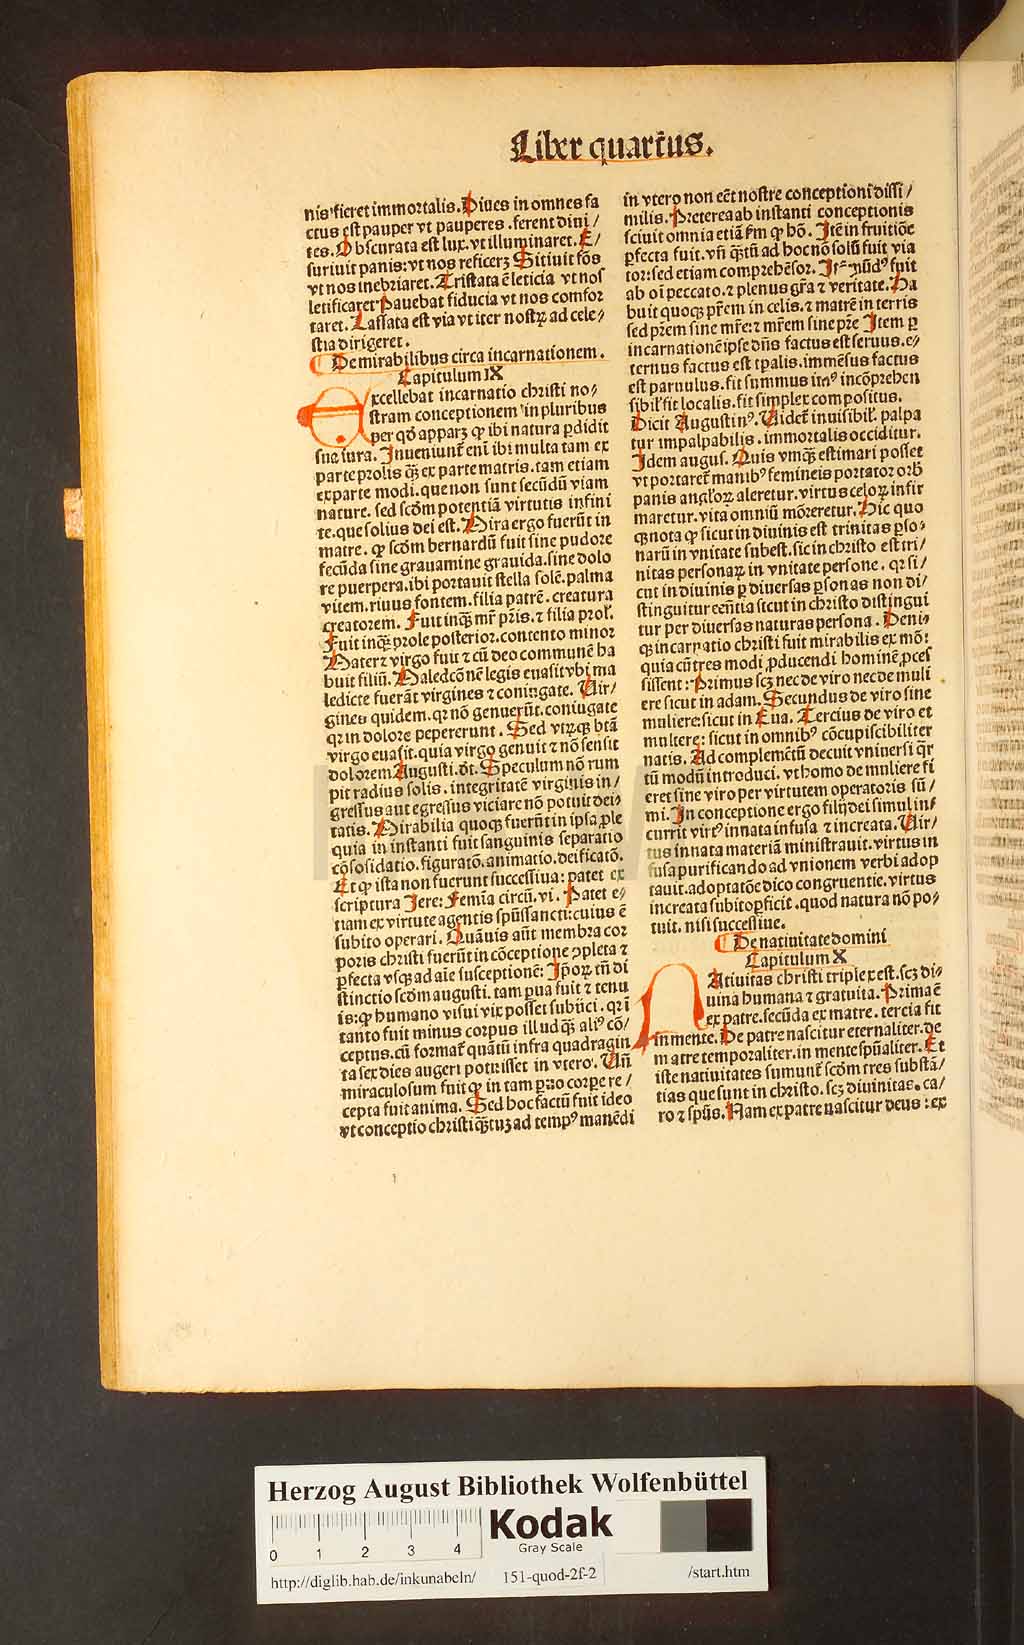 Liber quartus.
nis fieret immortalis. Diues in omnes fa
ctus est pauper vt pauperes. ferent diui/
tes. Obscurata est lux. vt illuminaret. E/
suriuit panis: vt nos reficerꝫ Sitiuit fōs
vt nos inebriaret. Tristata ē leticia vt nos
letificaret Pauebat fiducia vt nos comfor
taret. Lassata est via vt iter nostrꝫ ad cele⸗
stia dirigeret.
De mirabilibus circa incarnationem.
Capitulum IX
Excellebat incarnatio christi no⸗
stram conceptionem in pluribus
per qđ apparꝫ ꝙ ibi natura ꝑdidit
sua iura. Inueniunt̄ eni ibi multa tam ex
parte prolis qꝫ ex parte matris. tam etiam
ex parte modi. que non sunt secūdū viam
nature. sed scđm potentiā virtutis infini
te. que solius dei est. Mira ergo fuerūt in
matre. ꝙ scđm bernardū fuit sine pudore
fecūda sine grauamine grauida. sine dolo
re puerpera. ibi portauit stella solē. palma
vitem. riuus fontem. filia patrē. creatura
creatorem. Fuit inqꝫ mr̄ pr̄is. ⁊ filia prol'.
Fuit inqꝫ prole posterior. contento minor
Mater ⁊ virgo fuit ⁊ cū deo commune ha
buit filiū. Maledcōnē legis euasit vbi ma
ledicte fuerāt virgines ⁊ coniugate. Uir/
gines quidem. qꝛ nō genuerūt. coniugate
qꝛ in dolore pepererunt. Sed vtrꝫqꝫ btā
virgo euasit. quia virgo genuit ⁊ nō sensit
dolorem Augusti. dt̄. Speculum nō rum
pit radius solis. integritatē virginis in/
gressus aut egressus viciare nō potuit dei⸗
tatis. Mirabilia quoqꝫ fuerūt in ipsa ꝓle
quia in instanti fuit sanguinis separatio
cōsolidatio. figuratō. animatio. deificatō.
Et ꝙ ista non fuerunt successiua: patet ex
scriptura Iere: Femia circū. vi. Patet e⸗
tiam ex virtute agentis spūssancti: cuius ē
subito operari. Quāuis aūt membra cor
poris christi fuerūt in cōceptione ꝯpleta ⁊
ꝑfecta vsqꝫ ad aīe susceptionē: Ipoꝝ tn̄ di
stinctio scđm augusti. tam ꝑua fuit ⁊ tenu
is: ꝙ humano visui vix posset subiici. qꝛ ī
tanto fuit minus corpus illud qꝫ ali⁹ cō/
ceptus. cū format̄ quātū infra quadragin
ta sex dies augeri potuisset in vtero. Un̄
miraculosum fuit ꝙ in tam ꝑuo corpe re/
cepta fuit anima. Sed hoc factū fuit ideo
vt conceptio christi qꝫtuꝫ ad temp⁹ manēdi
in vtero non eēt nostre conceptioni dissi/
milis. Preterea ab instanti conceptionis
sciuit omnia etiā ẜm ꝙ hō. Itē in fruitiōe
ꝑfecta fuit. vn̄ qꝫtū ad hoc nō solū fuit via
tor: sed etiam comprehēsor. fuit
ab oī peccato. ⁊ plenus gr̄a ⁊ veritate. Ha
buit quoqꝫ pr̄em in celis. ⁊ matrē in terris
sed pr̄em sine mr̄e: ⁊ mr̄em sine pr̄e Item ꝑ
incarnationē ipse dn̄s factus est seruus. e⸗
ternus factus est tpalis. immēsus factus
est paruulus. fit summus im⁹ incōprehen
sibil' fit localis. fit simplex compositus.
Dicit Augustin⁹. Uidet̄ inuisibil'. palpa
tur impalpabilis. immortalis occiditur.
Idem augus. Quis vmqꝫ estimari posset
vt portaret̄ manib⁹ femineis portator orb'
panis angl'oꝝ aleretur. virtus celoꝝ infir
maretur. vita omniū mōreretur. Hic quo
qꝫ nota ꝙ sicut in diuinis est trinitas ꝑso⸗
narū in vnitate subest. sic in christo est tri/
nitas personaꝝ in vnitate persone. qꝛ si/
cut in diuinis ꝑ diuersas ꝑsonas non di/
stinguitur eēntia sicut in christo distingui
tur per diuersas naturas persona. Deni⸗
qꝫ incarnatio christi fuit mirabilis ex mō:
quia cū tres modi ꝓducendi hominē ꝓces
sissent: Primus scꝫ nec de viro nec de muli
ere sicut in adam. Secundus de viro sine
muliere sicut in Eua. Tercius de viro et
muliere: sicut in omnib⁹ cōcupiscibiliter
natis. Ad complemētū decuit vniuersi qr̄
tū modū introduci. vt homo de muliere fi
eret sine viro per virtutem operatoris sū/
mi. In conceptione ergo filij dei simul in⸗
currit virt⁹ innata infusa ⁊ increata. Uir/
tus innata materiā ministrauit. virtus in
fusa purificando ad vnionem verbi adop
tauit. adoptatōe dico congruentie. virtus
increata subito ꝑficit. quod natura nō po⸗
tuit. nisi successiue.
De natiuitate domini
Capitulum X
Natiuitas christi triplex est. scꝫ di⸗
uina humana ⁊ gratuita. Prima ē
ex patre. secūda ex matre. tercia fit
in mente. De patre nascitur eternaliter. de
matre temporaliter. in mente spūaliter. Et
iste natiuitates sumunt̄ scđm tres substā/
tias que sunt in christo. scꝫ diuinitas. ca/
ro ⁊ spūs. Nam ex patre nascitur deus: ex
Herzog August Bibliothek Wolfenbüttel
Kodak
Gray Scale
0 1 2 3 4
http://diglib.hab.de/inkunabeln/ 151-quod-2f-2 /start.htm